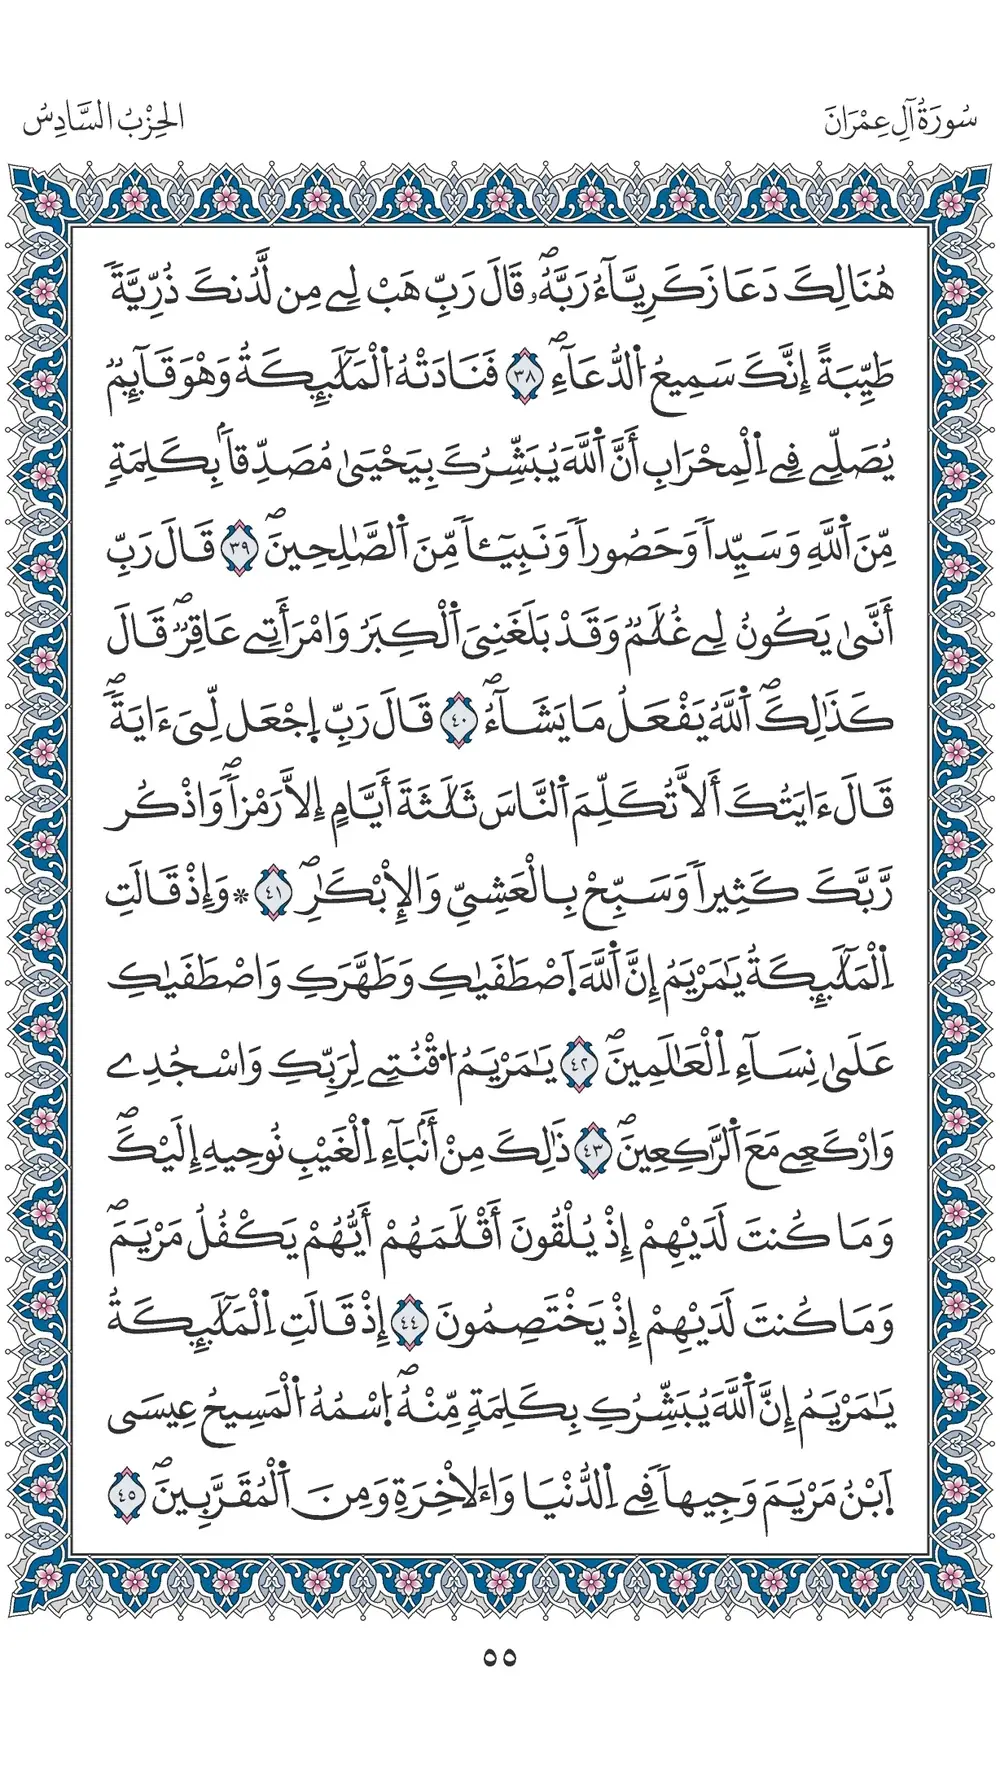 سُورَةُ آلِ عِمْرَانَ
الحِزْبُ السَّادِسُ
هُنَالِكَ دَعَا زَكَرِيَّآءُ رَبَّهُۥۖ قَالَ رَبِّ هَبْ لِے مِن لَّدُنكَ ذُرِّيَّةٗ
طَيِّبَةً إِنَّكَ سَمِيعُ اُ۬لدُّعَآءِۖ ٣٨ فَنَادَتْهُ اُ۬لْمَلَٰٓئِكَةُ وَهْوَ قَآئِمٞ
يُصَلِّے فِے اِ۬لْمِحْرَابِ أَنَّ اَ۬للَّهَ يُبَشِّرُكَ بِيَحْيَىٰ مُصَدِّقاَۢ بِكَلِمَةٖ
مِّنَ اَ۬للَّهِ وَسَيِّداٗ وَحَصُوراٗ وَنَبِيٓـٔاٗ مِّنَ اَ۬لصَّٰلِحِينَۖ ٣٩ قَالَ رَبِّ
أَنَّىٰ يَكُونُ لِے غُلَٰمٞ وَقَدْ بَلَغَنِيَ اَ۬لْكِبَرُ وَامْرَأَتِے عَاقِرٞۖ قَالَ
كَذَٰلِكَۖ اَ۬للَّهُ يَفْعَلُ مَا يَشَآءُۖ ٤٠ قَالَ رَبِّ اِ۪جْعَل لِّيَ ءَايَةٗۖ
قَالَ ءَايَتُكَ أَلَّا تُكَلِّمَ اَ۬لنَّاسَ ثَلَٰثَةَ أَيَّامٍ إِلَّا رَمْزاٗۖ وَاذْكُر
رَّبَّكَ كَثِيراٗ وَسَبِّحْ بِالْعَشِيِّ وَالِابْكٰ۪رِۖ ٤١ ۞ وَإِذْ قَالَتِ
اِ۬لْمَلَٰٓئِكَةُ يَٰمَرْيَمُ إِنَّ اَ۬للَّهَ اَ۪صْطَفَيٰكِ وَطَهَّرَكِ وَاصْطَفَيٰكِ
عَلَىٰ نِسَآءِ اِ۬لْعَٰلَمِينَۖ ٤٢ يَٰمَرْيَمُ اُ۟قْنُتِے لِرَبِّكِ وَاسْجُدِے
وَارْكَعِے مَعَ اَ۬لرَّٰكِعِينَۖ ٤٣ ذَٰلِكَ مِنْ أَنۢبَآءِ اِ۬لْغَيْبِ نُوحِيهِ إِلَيْكَۖ
وَمَا كُنتَ لَدَيْهِمْ إِذْ يُلْقُونَ أَقْلَٰمَهُمْ أَيُّهُمْ يَكْفُلُ مَرْيَمَۖ
وَمَا كُنتَ لَدَيْهِمْ إِذْ يَخْتَصِمُونَ ٤٤ إِذْ قَالَتِ اِ۬لْمَلَٰٓئِكَةُ
يَٰمَرْيَمُ إِنَّ اَ۬للَّهَ يُبَشِّرُكِ بِكَلِمَةٖ مِّنْهُۖ اُ۪سْمُهُ اُ۬لْمَسِيحُ عِيسَى
اَ۪بْنُ مَرْيَمَ وَجِيهاٗ فِے اِ۬لدُّنْيَا وَالَاخِرَةِ وَمِنَ اَ۬لْمُقَرَّبِينَۖ ٤٥
٥٥